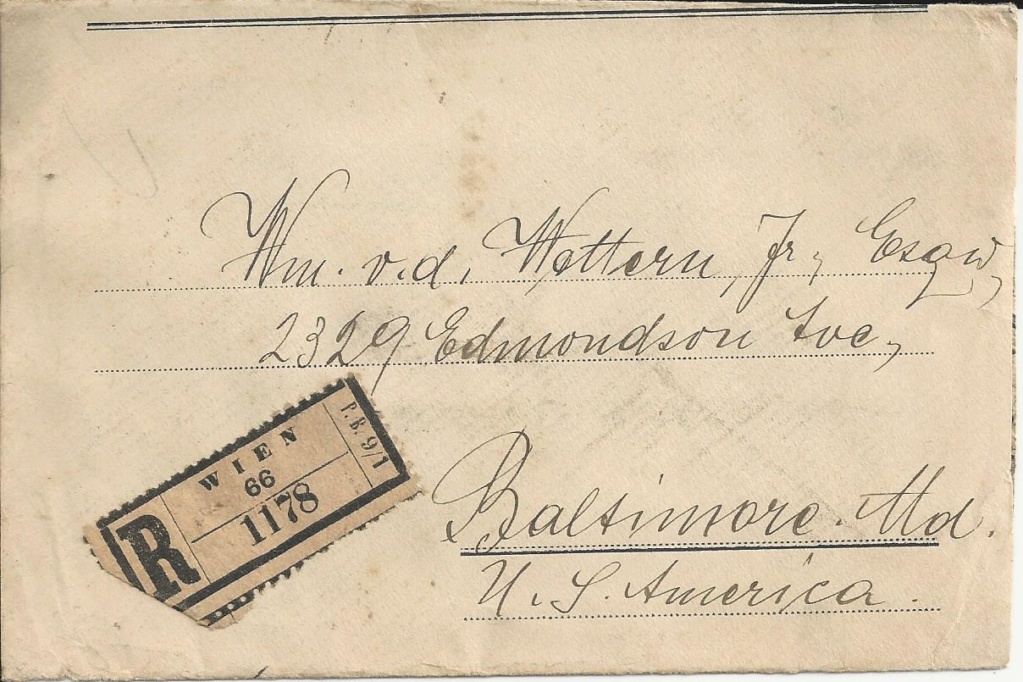 Wm. v.d. Wettern, Jr., Esqu,
2329 Edmondson Ave,
Baltimore. Md.
U. S. America.
R
WIEN
66
1178
P.B. 9/1